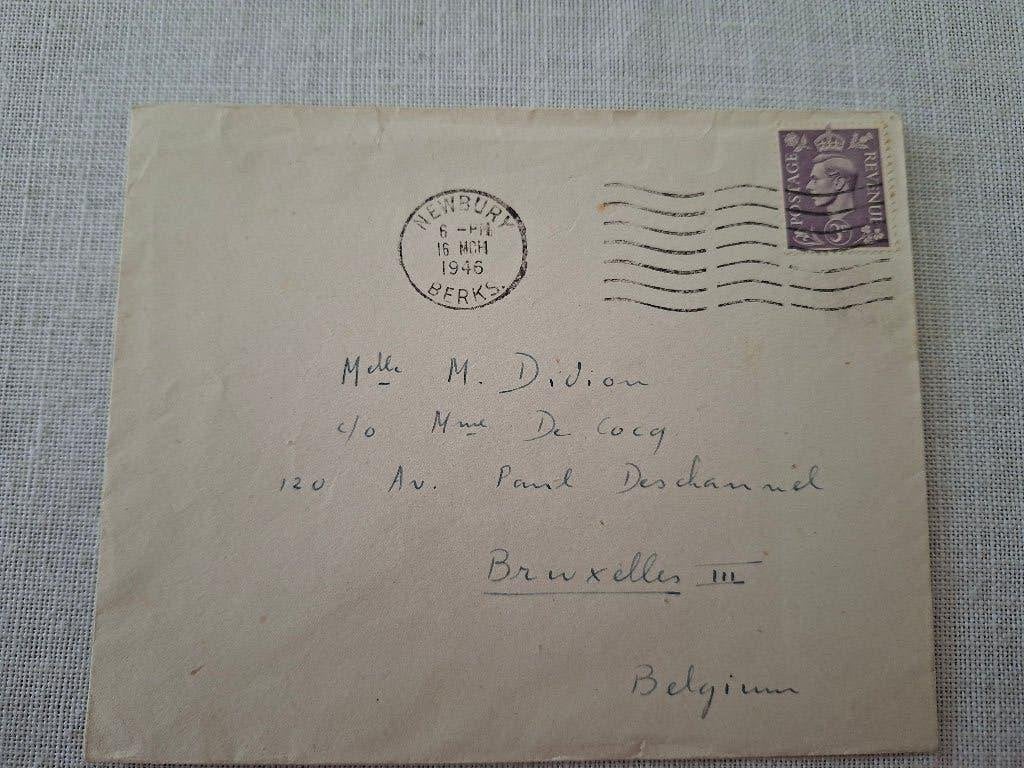 POSTAGE REVENUE
3D
NEWBURY
6 - PM
16 MCH
1946
BERKS.
Melle M. Didion
c/o Mme De Cocq
120 Av. Paul Deschannel
Bruxelles III
Belgium